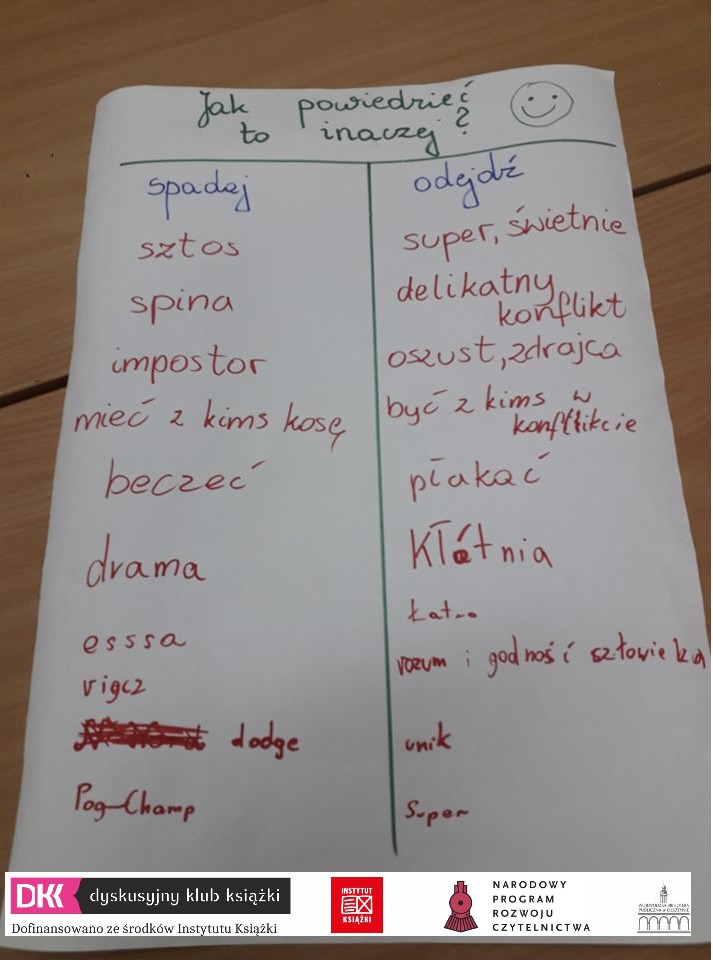 Jak powiedzieć
to inaczej?
spadaj odejdź
sztos super, świetnie
spina delikatny
konflikt
impostor oszust, zdrajca
mieć z kims kosę być z kims w
konfliktcie
beczeć płakać
drama Kłótnia
esssa Łatwo
rigcz rozum i godność człowieka
dodge unik
Pog-Champ Super
DKK dyskusyjny klub książki
Dofinansowano ze środków Instytutu Książki
INSTYTUT
KSIĄŻKI
NARODOWY
PROGRAM
ROZWOJU
CZYTELNICTWA
WOJEWÓDZKA BIBLIOTEKA
PUBLICZNA W OLSZTYNIE